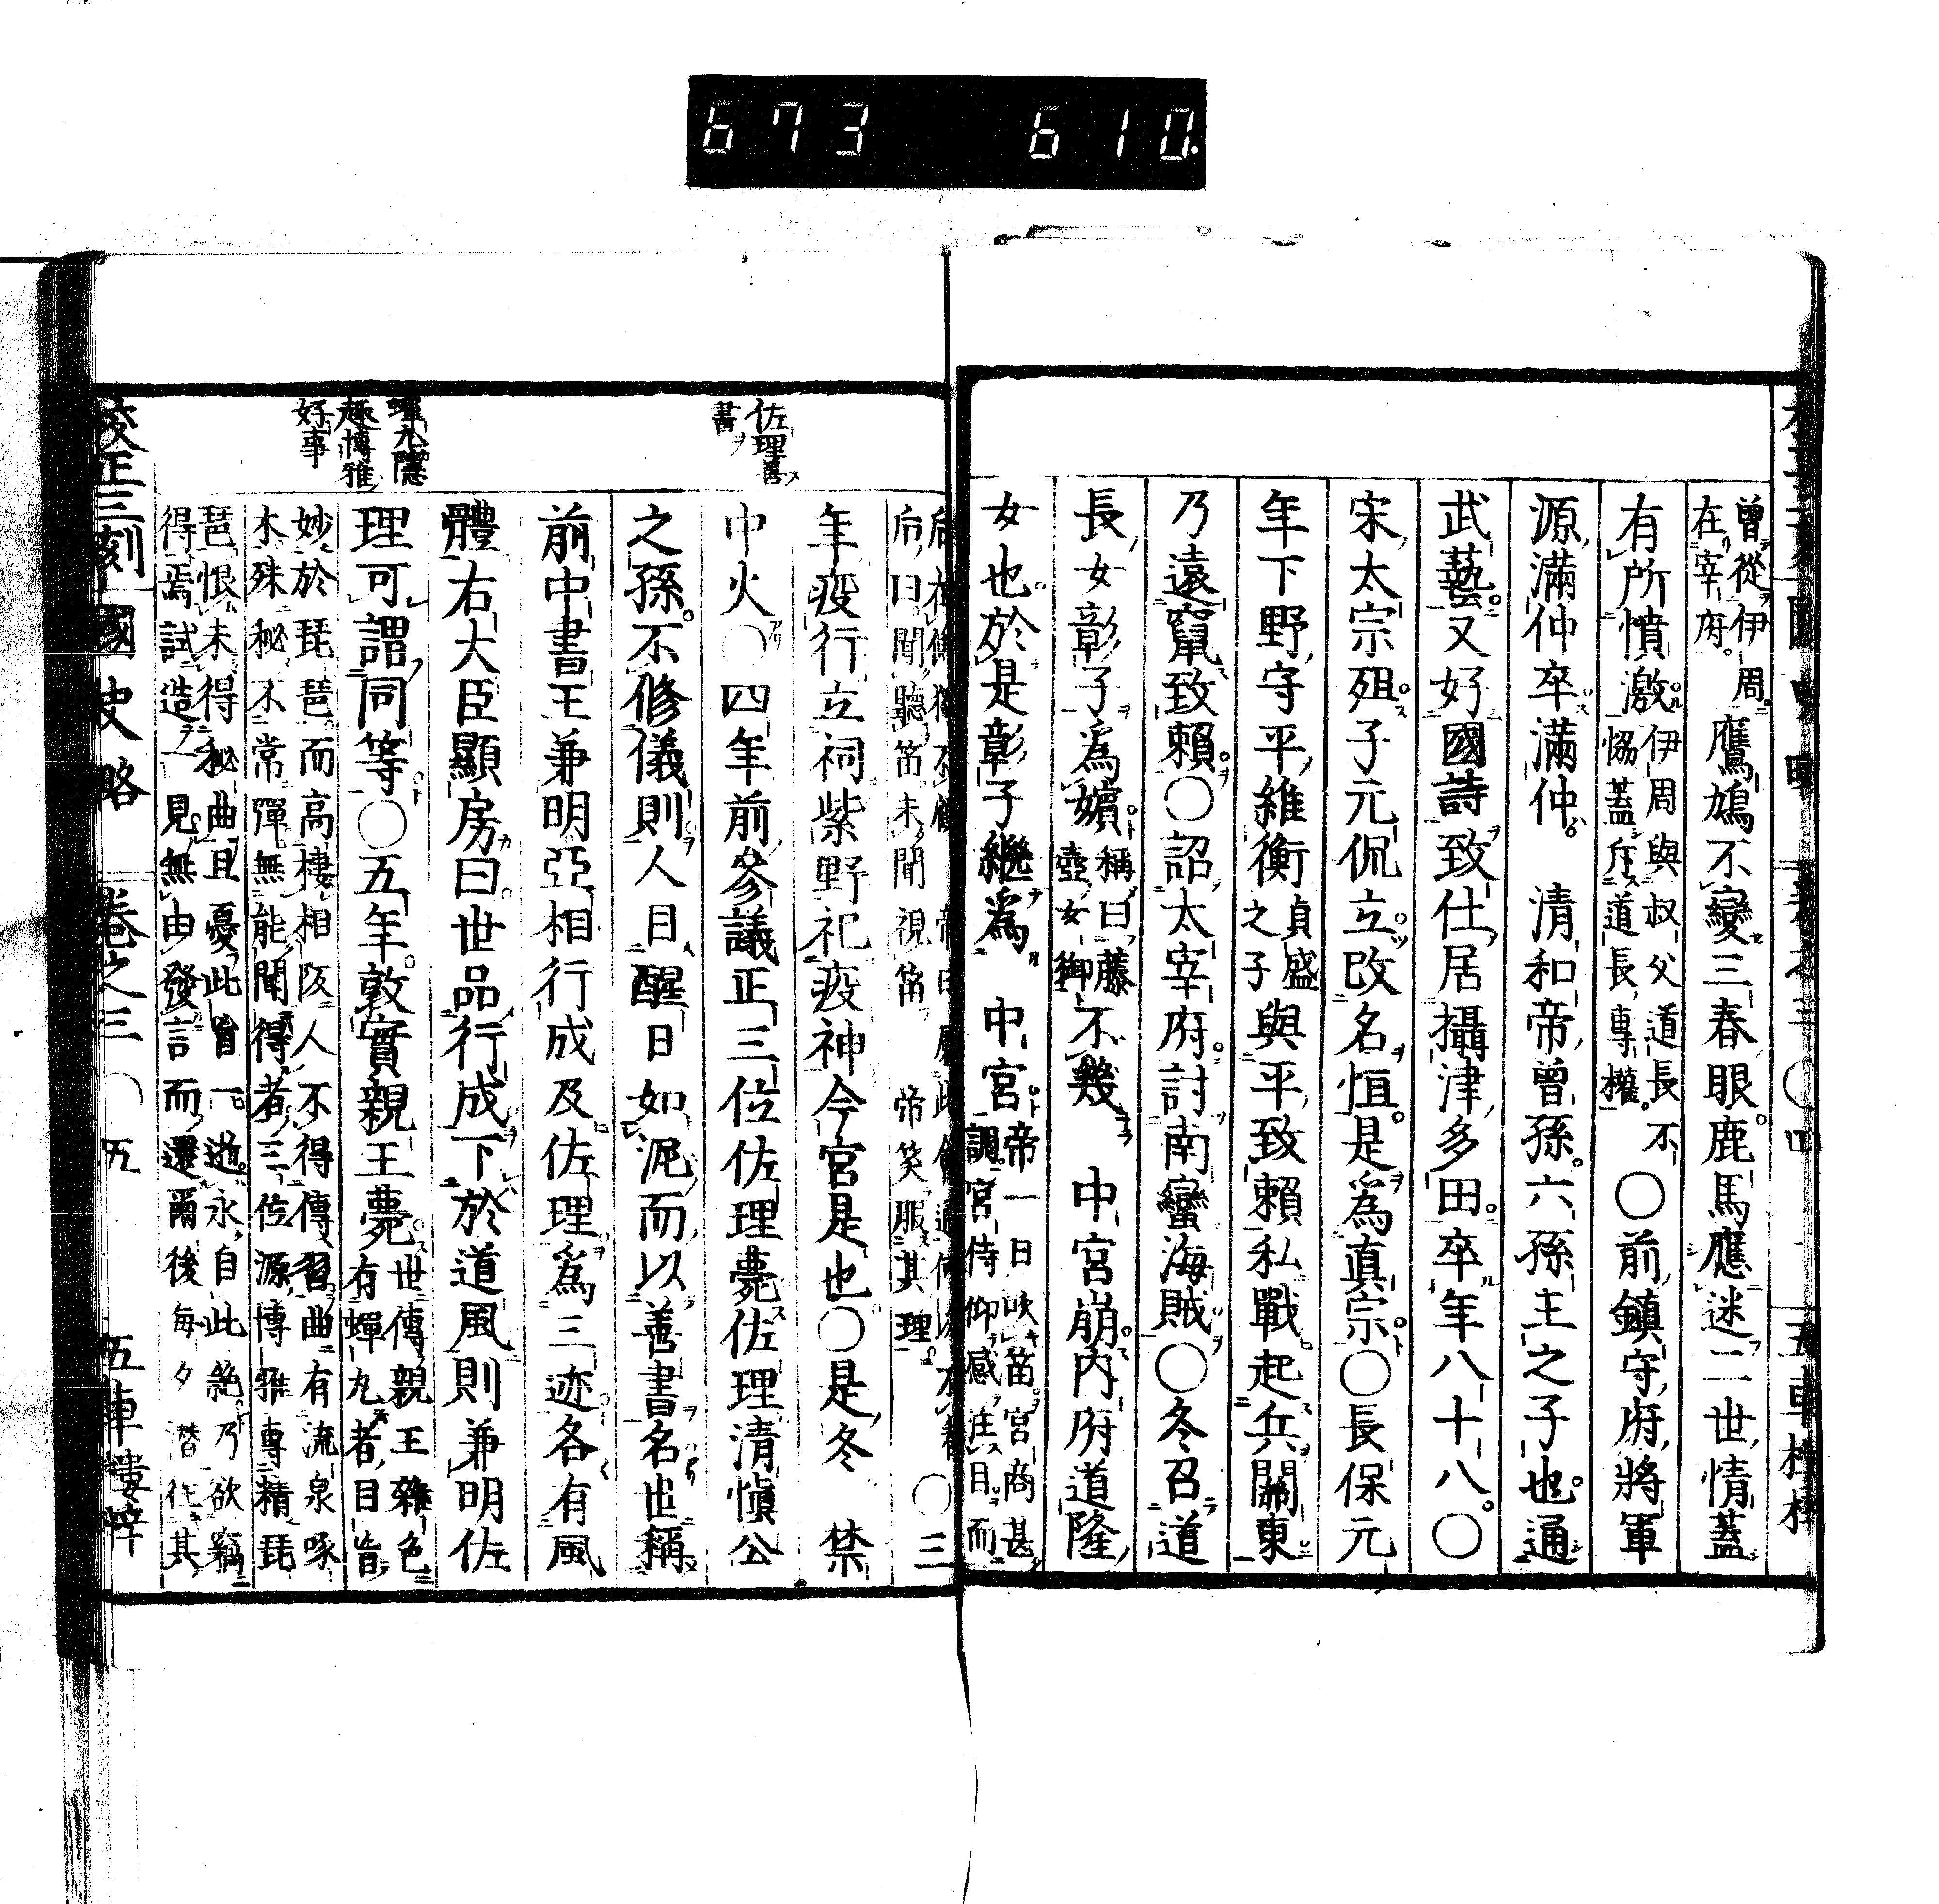 673 610.
曾從伊周
在宰府。
鷹鳩不變三春眼。鹿馬應迷二世情蓋
有所憤激
伊周與叔父道長不
恊蓋斥道長專權。
○前鎮守府將軍
源滿仲卒滿仲。清和帝曾孫。六孫王之子也。通
武藝。又好國詩致仕居攝津多田。卒年八十八。○
宋太宗殂。子元侃立。改名恒。是爲真宗○長保元
年下野守平維衡
貞盛
之子
與平致賴私戰起兵關東
乃遠竄致賴○詔太宰府。討南蠻海賊○冬召道
長女彰子爲嬪
稱曰藤
壺女御
不幾中宮崩。内府道隆
女也。於是彰子繼爲中宮
帝一日吹笛。宮商甚
調。宮侍仰感注目。而
后曰聞聽笛未聞視笛帝笑服其理。
○三
年疫行立祠紫野祀疫神今宮是也○是冬禁
中火○四年前參議正三位佐理薨佐理清愼公
之孫。不修儀則人目醒日如泥而以善書名世稱
前中書王兼明亞相行成及佐理爲三迹各有風
體右大臣顯房曰。世品行成下於道風則兼明佐
理可謂同等○五年。敦實親王薨
世傳親王雜色
有蟬丸者目盲
妙於琵琶而高棲相阪人不得傳習曲有流泉啄
木殊秘不常彈無能聞得者三位源博雅專精琵
琶恨未得秘曲且憂此盲一逝。永自此絶乃欲竊
得焉試造一見無由發言而還爾後每夕潛往其
佐理善
書
蟬丸隱
趣博雅
好事
校正三刻國史略 卷之三 ○五 五車樓梓